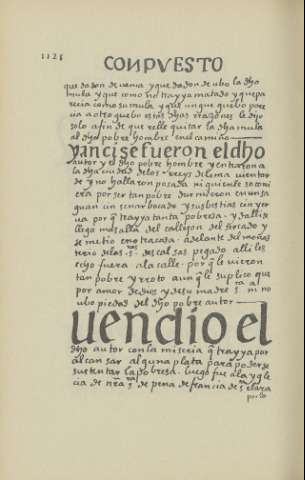 1125
CONPVESTO
que dadon de uenia y que dadon de ubo la dha
mula y que como no trayya matado y que pa
recia como su mula y q aunque quebo pare
ua a otro quebo estas dhas rrazones le dijo
solo a fin de que relle quitar la dha mula
al dho pobre hombre en el camino
yanci se fueron el dho
autor y el dho pobre hombre y entraron a
la dha ciudad de los rreys de lima uientar
de y no hallaron posada ni quien le acomi
era por ser tan pobre durmieron en un sa
guan cin senar bocado y sus bistias cin yer
ua por q trayya tanta pobresa y salli
llego mas alla del callejon del sircado y
se metio en otra casa adelante del monas
terio de los .s. descalsos pegado alli les
echo fuera a la calle por q le uieron
tan pobre y rroto aunq le suplico que
por amor de dios y de su madre s^ta m^a no
ubo piedad del dho pobre autor
uendio el
dho autor con la miseria q trayya por
alcansar alguna plata para poderse
sustentar la pobresa luego fue a la ygle
cia de nra s^ra de pena de francia de s^ta clara
por lo